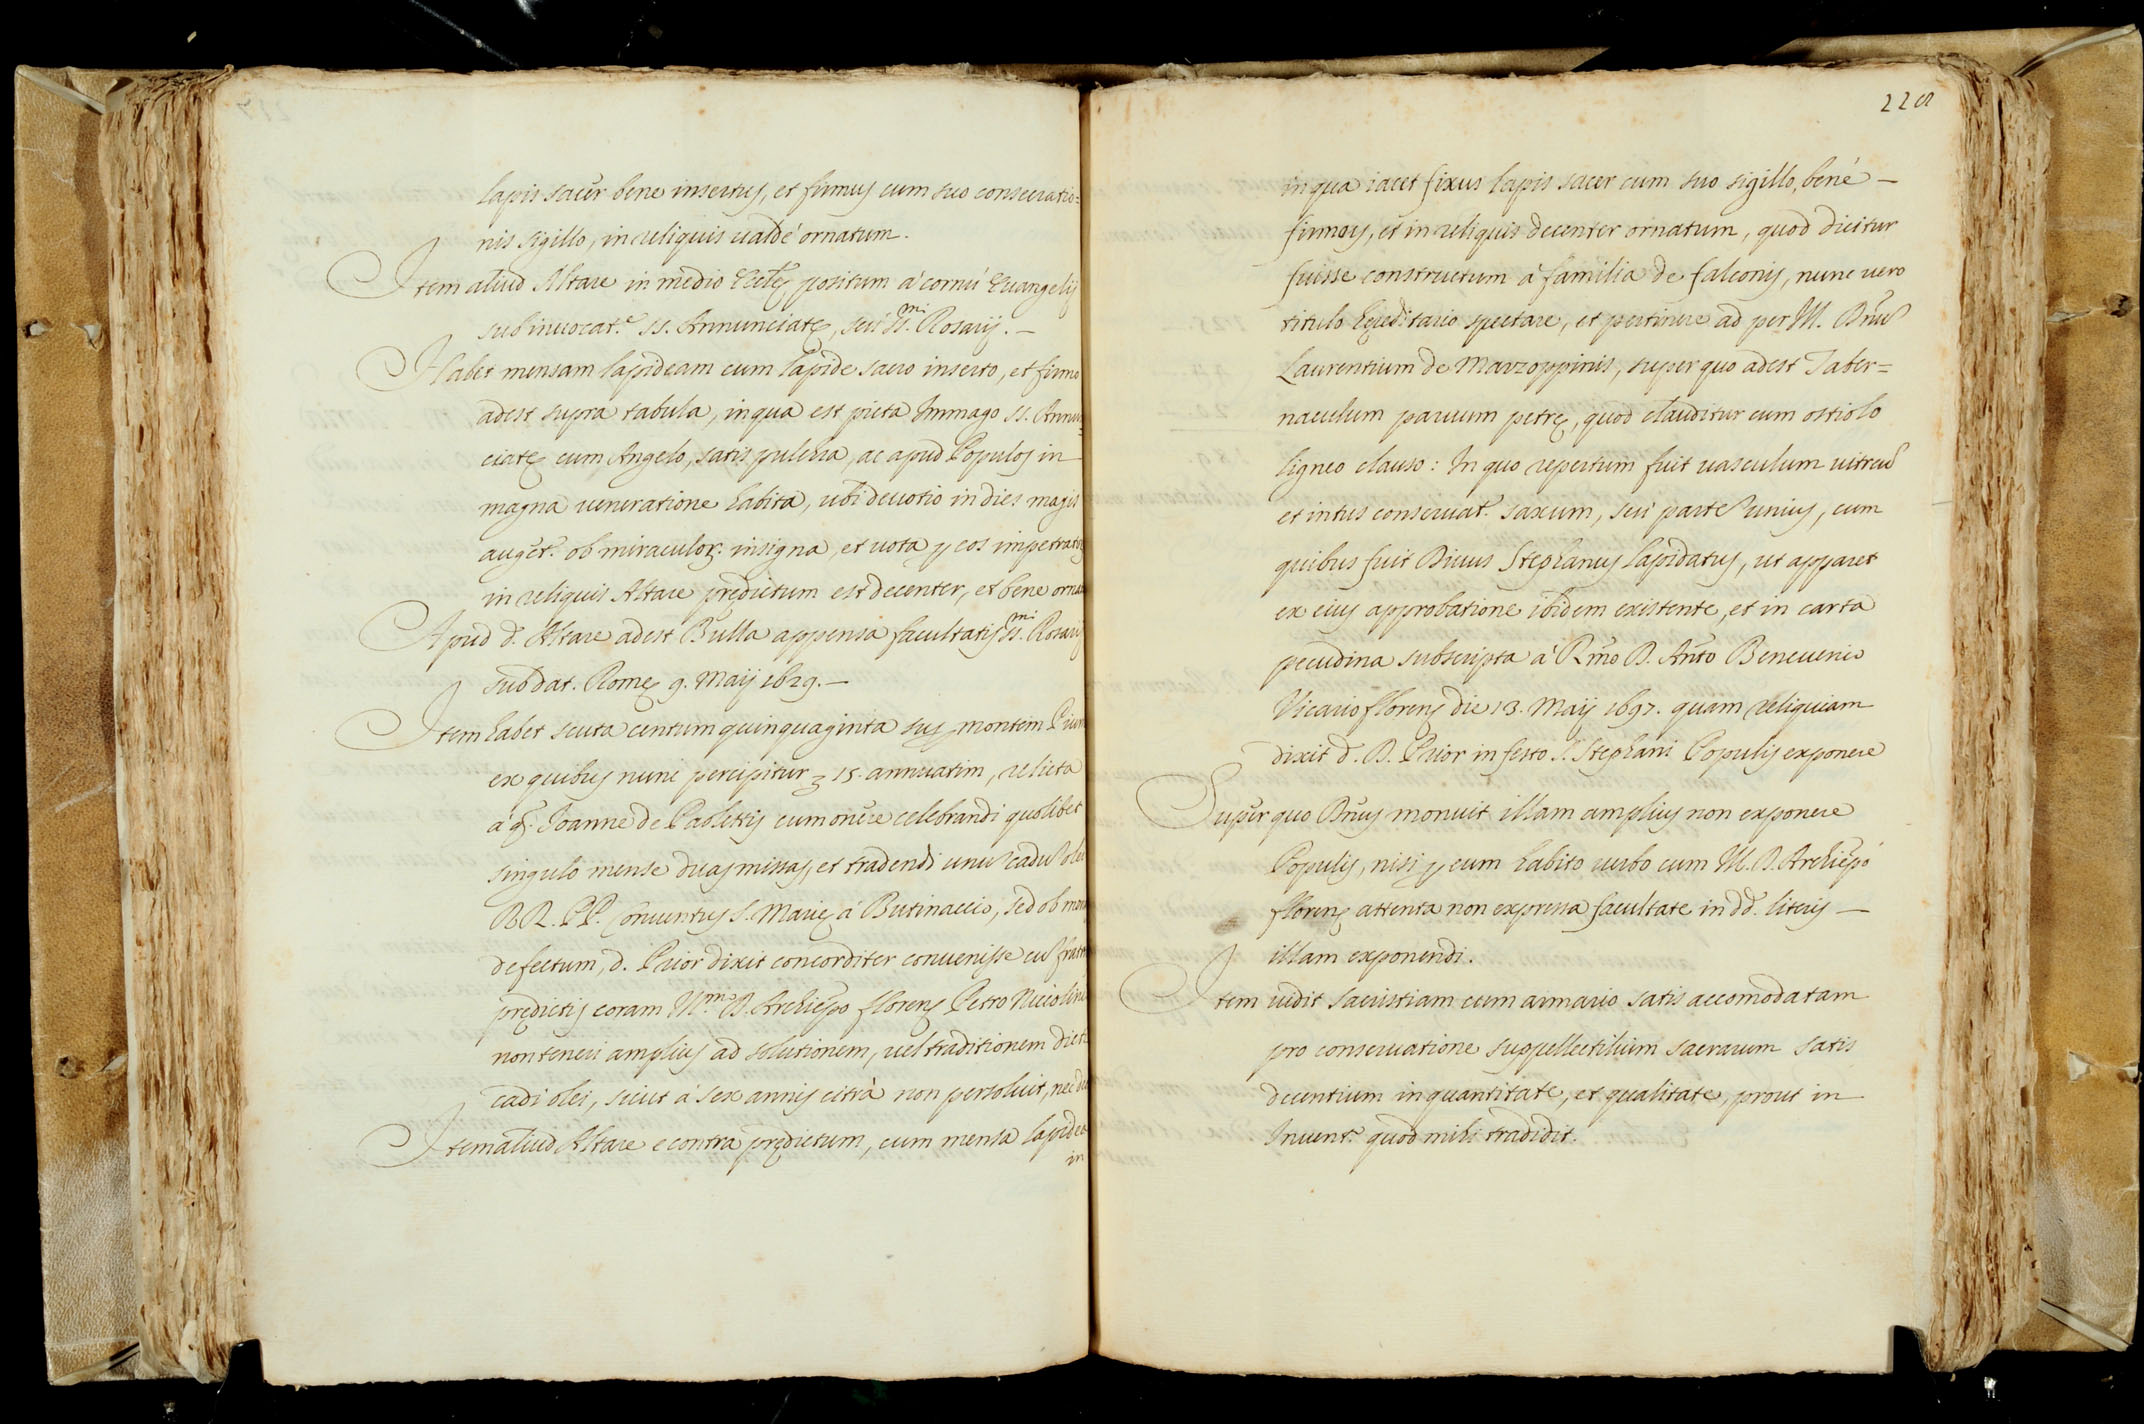 lapis sacer bene insertus, et firmus cum suo consecratio=
nis sigillo, in reliquis ualdè ornatum.
Item aliud Altare in medio Eccleę positum à cornù Euangelij
sub inuocat.e ss. Annunciatę, seù ss.mi Rosarij. —
Habet mensam lapideam cum lapide sacro inserto, et firmo
adest supra tabula, in qua est picta Immago ss. Annun=
ciatę cum Angelo, satis pulcra, ac apud Populos in
magna ueneratione habita, ubi deuotio in dies magis
auget.r ob miraculor. insigna, et uota p eos impetrata
in reliquis Altare prędictum est decenter, et bene ornatu
Apud d. Altare adest Bulla appensa facultatis ss.mi Rosarij
sub dat. Romę 9. Maij 1629. —
Item habet scuta centum quinquaginta sup montem Pium
ex quibus nunc percipitur 15. annuatim, relicta
à q. Joanne de Paolettis cum onere celebrandi quolibet
singulo mense duas missas, et tradendi unu cadu olei
RR. PP. Conuentus S. Marię à Butinaccio, sed ob
defectum, d. Prior dixit concorditer conuenisse cu fratri
prędictis coram Ill.mo D. Archiepo floren Petro Niccolini
non teneri amplius ad solutionem, uel traditionem dicti
cadi olei, sicut à sex annis citrà non persoluit, nec
Item aliud Altare e contra prędictum, cum mensa lapidea
in
228
in qua iacet fixus lapis sacer cum suo sigillo, benè —
firmus, et in reliquis decenter ornatum, quod dicitur
fuisse constructum à familia de falconis, nunc uero
titulo hęreditario spectare, et pertinere ad per Ill. Dnu
Laurentium de Marzoppinis, super quo adest Taber=
naculum paruum petrę, quod clauditur cum ostiolo
ligneo clauso: In quo repertum fuit uasculum uitreu
et intus conseruat.r saxum, seù parte unius, cum
quibus fuit Diuus Stephanus lapidatus, ut apparet
ex eius approbatione ibidem existente, et in carta
pecudina subscripta à Rmo D. Anto Beneuenio
Vicario floren die 13. Maij 1697. quam reliquiam
dixit d. D. Prior in festo S. Stephani Populis exponere
Super quo Dnus monuit illam amplius non exponere
Populis, nisi p eum habito uerbo cum Ill. D. Archiepo
floren attenta non expressa facultate in dd. literis —
illam exponendi.
Item uidit sacristiam cum armario satis accomodatam
pro conseruatione suppellectilium sacrarum satis
decentium in quantitate, et qualitate, prout in
Inuent.o quod mihi tradidit.